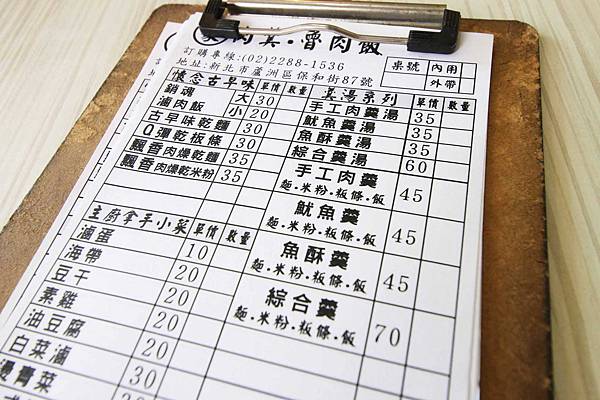 肉羹·魯肉飯
訂購專線:(02)2288-1536
地址:新北市蘆洲區保和街87號
桌號 內用
外帶
懷念古早味 單價 數量
銷魂 大 30
滷肉飯 小 20
古早味乾麵 30
Q彈乾板條 30
飄香肉燥乾麵 35
飄香肉燥乾米粉 35
主廚拿手小菜 單價 數量
滷蛋 10
海帶 20
豆干 20
素雞 20
油豆腐 20
白菜滷 30
燙青菜 30
羹湯系列 單價 數量
手工肉羹湯 35
魷魚羹湯 35
魚酥羹湯 35
綜合羹湯 60
手工肉羹 45
麵·米粉·板條·飯
魷魚羹 45
麵·米粉·板條·飯
魚酥羹 45
麵·米粉·板條·飯
綜合羹 70
麵·米粉·板條·飯